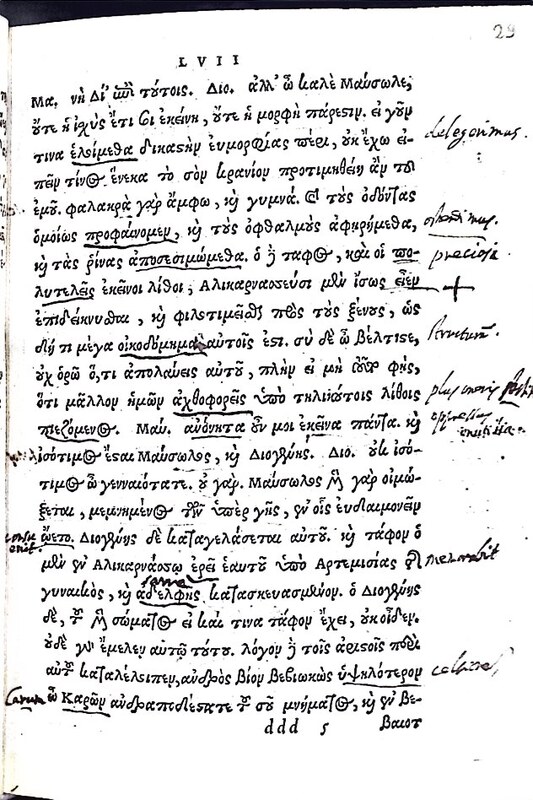 29
LVII
Μα. νὴ Δί' ἐπὶ τούτοις. Διο. ἀλλ' ὦ καλὲ Μαύσωλε,
οὔτε ἡ ἰχὺς ἔτι σοι ἐκείνη, οὔτε ἡ μορφὴ πάρεστιν. εἰ γοῦν
τινα ἑλοίμεθα δικαστὴν εὐμορφίας πέρι, οὐκ ἔχω εἰ-
πεῖν τίνος ἕνεκα τὸ σὸν κρανίον προτιμηθείη ἂν τοῦ
ἐμοῦ. φαλακρὰ γὰρ ἄμφω, καὶ γυμνά. καὶ τοὺς ὀδόντας
ὁμοίως προφαίνομεν, καὶ τοὺς ὀφθαλμοὺς ἀφῃρήμεθα,
καὶ τὰς ῥῖνας ἀποσεσιμώμεθα. ὁ δὲ τάφος, καὶ οἱ πο-
λυτελεῖς ἐκεῖνοι λίθοι, Ἁλικαρνασεῦσι μὲν ἴσως εἶεν
ἐπιδείκνυσθαι, καὶ φιλοτιμεῖσθαι πρὸς τοὺς ξένους, ὡς
δή τι μέγα οἰκοδόμημα αὐτοῖς ἐστι. σὺ δὲ ὦ βέλτιστε,
οὐχ ὁρῶ ὅ,τι ἀπολαύεις αὐτοῦ, πλὴν εἰ μὴ τοῦτο φῂς,
ὅτι μᾶλλον ἡμῶν ἀχθοφορεῖς ὑπὸ τηλικούτοις λίθοις
πιεζόμενος. Μαυ. ἀνόνητα οὖν μοι ἐκεῖνα πάντα. καὶ
ἰσότιμος ἔσται Μαύσωλος, καὶ Διογένης. Διο. οὐκ ἰσό-
τιμος ὦ γενναιότατε. οὐ γάρ. Μαύσωλος μὲν γὰρ οἰμώ-
ξεται, μεμνημένος τῶν ὑπὲρ γῆς, ἐν οἷς εὐδαιμονεῖν
ᾤετο. Διογένης δὲ καταγελάσεται αὐτοῦ. καὶ τάφον ὁ
μὲν ἐν Ἁλικαρνασῷ ἐρεῖ ἑαυτοῦ ὑπὸ Ἀρτεμισίας τῆς
γυναικὸς, καὶ ἀδελφῆς κατασκευασμένον. ὁ Διογένης
δὲ, τοῦ μὲν σώματος εἰ καί τινα τάφον ἔχει, οὐκ οἶδεν.
οὐδὲ γὰρ ἔμελεν αὐτῷ τούτου. λόγον δὲ τοῖς ἀρίστοις περὶ
αὐτοῦ καταλέλοιπεν, ἀνδρὸς βίον βεβιωκὼς ὑψηλότερον
ὦ Καρῶν ἀνδραποδέστατε τοῦ σοῦ μνήματος, καὶ ἐν βε-
ddd 5 βαιοτ
delegerimus.
preciosi